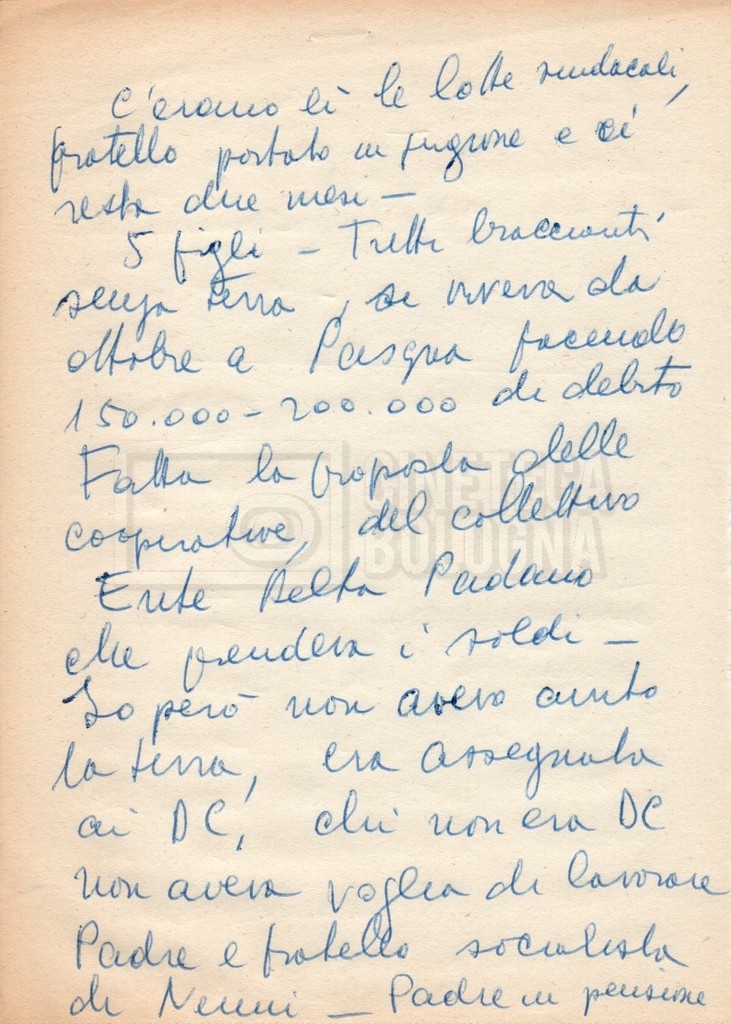 C'erano lì le lotte sindacali,
fratello portato in prigione e ci
resta due mesi —
5 figli — Tutti braccianti
senza terra, si viveva da
ottobre a Pasqua facendo
150.000 - 200.000 di debito
Fatta la proposta delle
cooperative, del collettivo
Ente Delta Padano
che prendeva i soldi —
Io però non avevo avuto
la terra, era assegnata
ai DC, chi non era DC
non aveva voglia di lavorare
Padre e fratello socialista
di Nenni — Padre in pensione
CINETECA
BOLOGNA